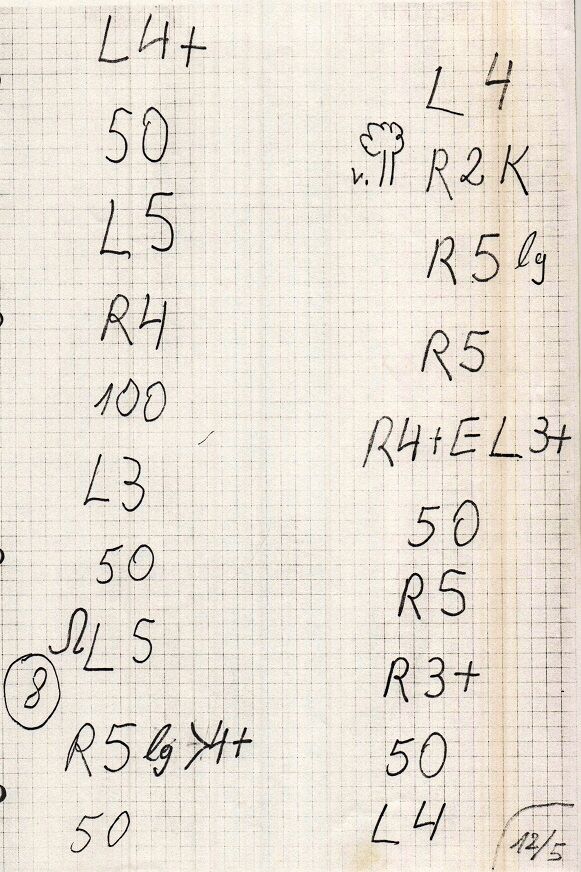 L4+
50
L5
R4
100
L3
50
ΩL5
8
R5 lg >4+
50
L4
v. R2K
R5 lg
R5
R4+EL3+
50
R5
R3+
50
L4
12/5